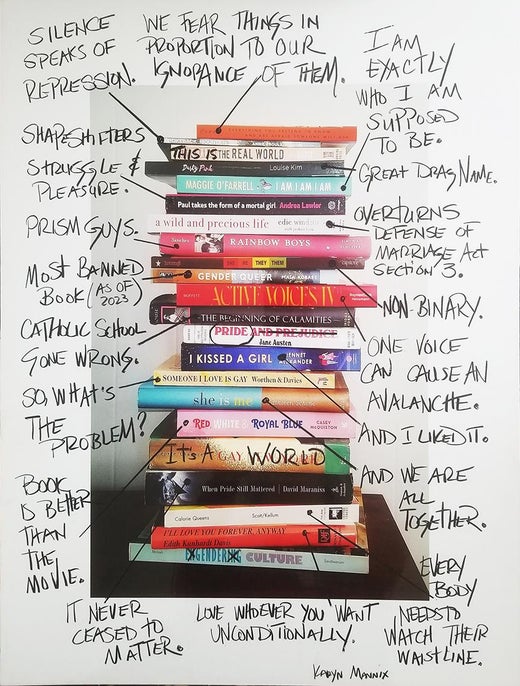 SILENCE
SPEAKS OF
REPRESSION.
WE FEAR THINGS IN
PROPORTION TO OUR
IGNORANCE OF THEM.
I AM
EXACTLY
WHO I AM
SUPPOSED
TO BE.
SHAPESHIFTERS
STRUGGLE &
PLEASURE.
PRISM GUYS.
MOST BANNED
BOOK (AS OF
2023)
CATHOLIC SCHOOL
GONE WRONG.
SO, WHAT'S
THE
PROBLEM?
BOOK
IS BETTER
THAN
THE
MOVIE.
THIS IS THE REAL WORLD
Dirty Pink Louise Kim
MAGGIE O'FARRELL I AM I AM I AM
Paul takes the form of a mortal girl Andrea Lawlor
a wild and precious life edie windsor
Sanchez RAINBOW BOYS
THEY THEM
GENDER QUEER MAIA KOBABE
ACTIVE VOICES IV
THE BEGINNING OF CALAMITIES
PRIDE AND PREJUDICE
Jane Austen
I KISSED A GIRL JENNET ALEXANDER
SOMEONE I LOVE IS GAY Worthen & Davies
she is me
RED WHITE & ROYAL BLUE CASEY McQUISTON
IT'S A GAY WORLD
When Pride Still Mattered David Maraniss
Calorie Queens Scott/Kellum
I'LL LOVE YOU FOREVER, ANYWAY
Edith Kunhardt Davis
ENGENDERING CULTURE Smithsonian
GREAT DRAG NAME.
OVERTURNS
DEFENSE OF
MARRIAGE ACT
SECTION 3.
NON BINARY.
ONE VOICE
CAN CAUSE AN
AVALANCHE.
AND I LIKED IT.
AND WE ARE
ALL
TOGETHER.
EVERY
BODY
NEEDS TO
WATCH THEIR
WAISTLINE.
IT NEVER
CEASED TO
MATTER.
LOVE WHOEVER YOU WANT
UNCONDITIONALLY.
KARYN MANNIX